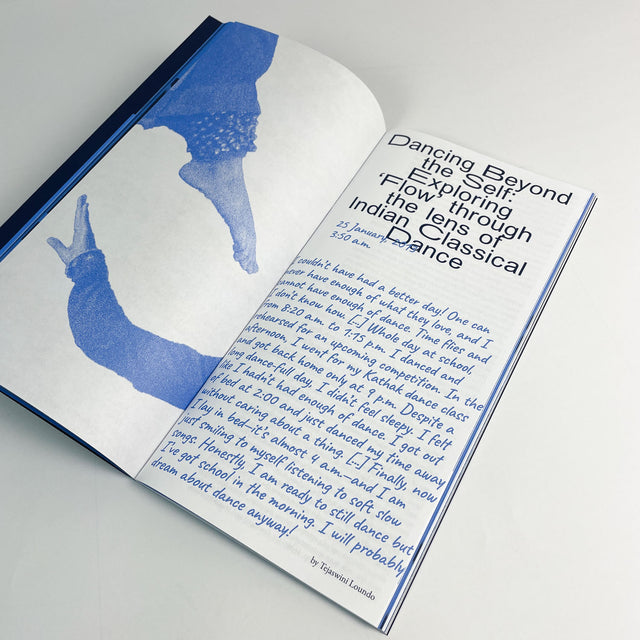 Dancing Beyond
the Self:
Exploring
'Flow' through
the lens of
Indian Classical
Dance
25 January,
3:50 a.m.
I couldn't have had a better day! One can
never have enough of what they love, and I
cannot have enough of dance. Time flies and
I don't know how. [...] Whole day at school,
from 8:20 a.m. to 7:15 p.m. I danced and
rehearsed for an upcoming competition. In the
afternoon, I went for my Kathak dance class
and got back home only at 9 p.m. Despite a
long dance-full day, I didn't feel sleepy. I felt
like I hadn't had enough of dance. I got out
of bed at 2:00 and just danced my time away
without caring about a thing. [...] Finally now
I lay in bed—it's almost 4 a.m.—and I am
just smiling to myself listening to soft slow
songs. Honestly, I am ready to still dance but
I've got school in the morning. I will probably
dream about dance anyway!
by Tejaswini Loundo